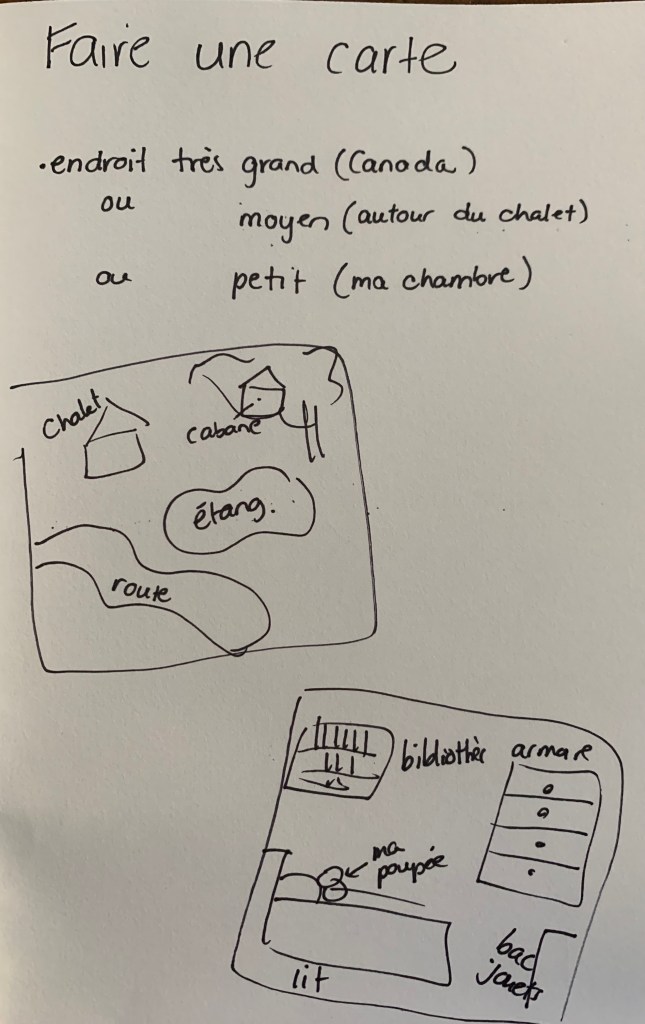 Faire une carte
• endroit très grand (Canada)
ou moyen (autour du chalet)
ou petit (ma chambre)
chalet
cabane
étang.
route
bibliothès
armare
ma
poupée
lit
bac
jouets